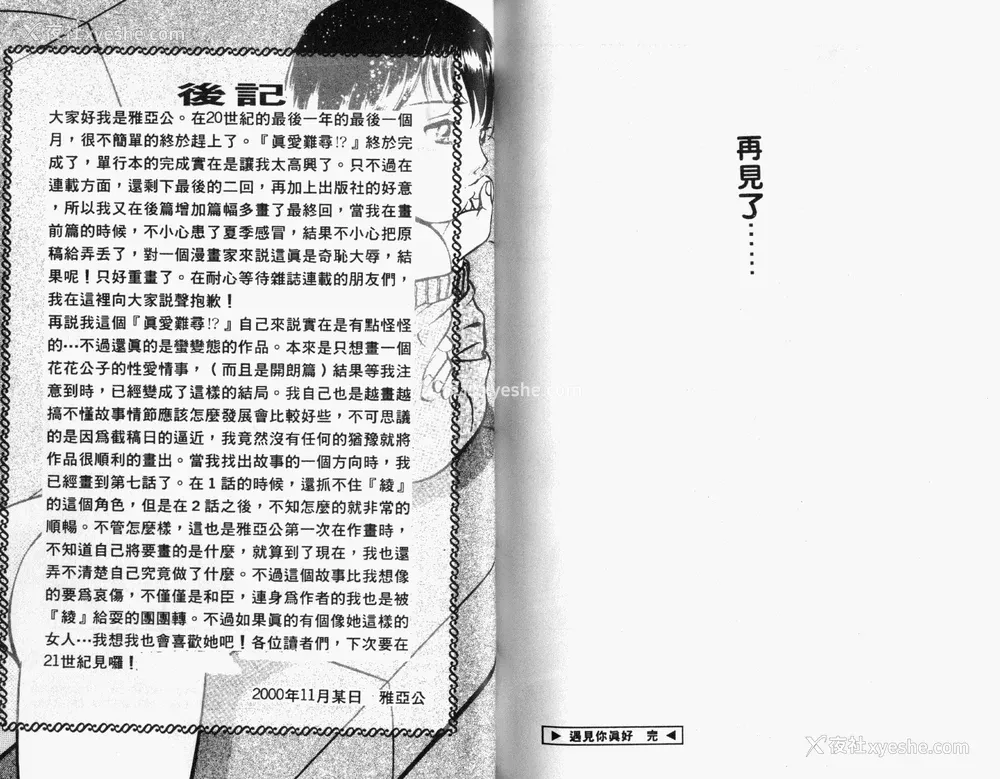 夜社xyeshe.com
後記
大家好我是雅亞公。在20世紀的最後一年的最後一個
月，很不簡單的終於趕上了。『眞愛難尋!?』終於完
成了，單行本的完成實在是讓我太高興了。只不過在
連載方面，還剩下最後的二回，再加上出版社的好意
，所以我又在後篇增加篇幅多畫了最終回，當我在畫
前篇的時候，不小心患了夏季感冒，結果不小心把原
稿給弄丟了，對一個漫畫家來說這眞是奇恥大辱，結
果呢！只好重畫了。在耐心等待雜誌連載的朋友們，
我在這裡向大家説聲抱歉！
再説我這個『眞愛難尋!?』自己來説實在是有點怪怪
的…不過還眞的是蠻變態的作品。本來是只想畫一個
花花公子的性愛情事，（而且是開朗篇）結果等我注
意到時，已經變成了這樣的結局。我自己也是越畫越
搞不懂故事情節應該怎麼發展會比較好些，不可思議
的是因爲截稿日的逼近，我竟然沒有任何的猶豫就將
作品很順利的畫出。當我找出故事的一個方向時，我
已經畫到第七話了。在１話的時候，還抓不住『綾』
的這個角色，但是在２話之後，不知怎麼的就非常的
順暢。不管怎麼樣，這也是雅亞公第一次在作畫時，
不知道自己將要畫的是什麼，就算到了現在，我也還
弄不清楚自己究竟做了什麼。不過這個故事比我想像
的要爲哀傷，不僅僅是和臣，連身爲作者的我也是被
『綾』給耍的團團轉。不過如果眞的有個像她這樣的
女人…我想我也會喜歡她吧！各位讀者們，下次要在
21世紀見囉！
2000年11月某日　雅亞公
再見了……
▶ 遇見你眞好　完 ◀
夜社xyeshe.com